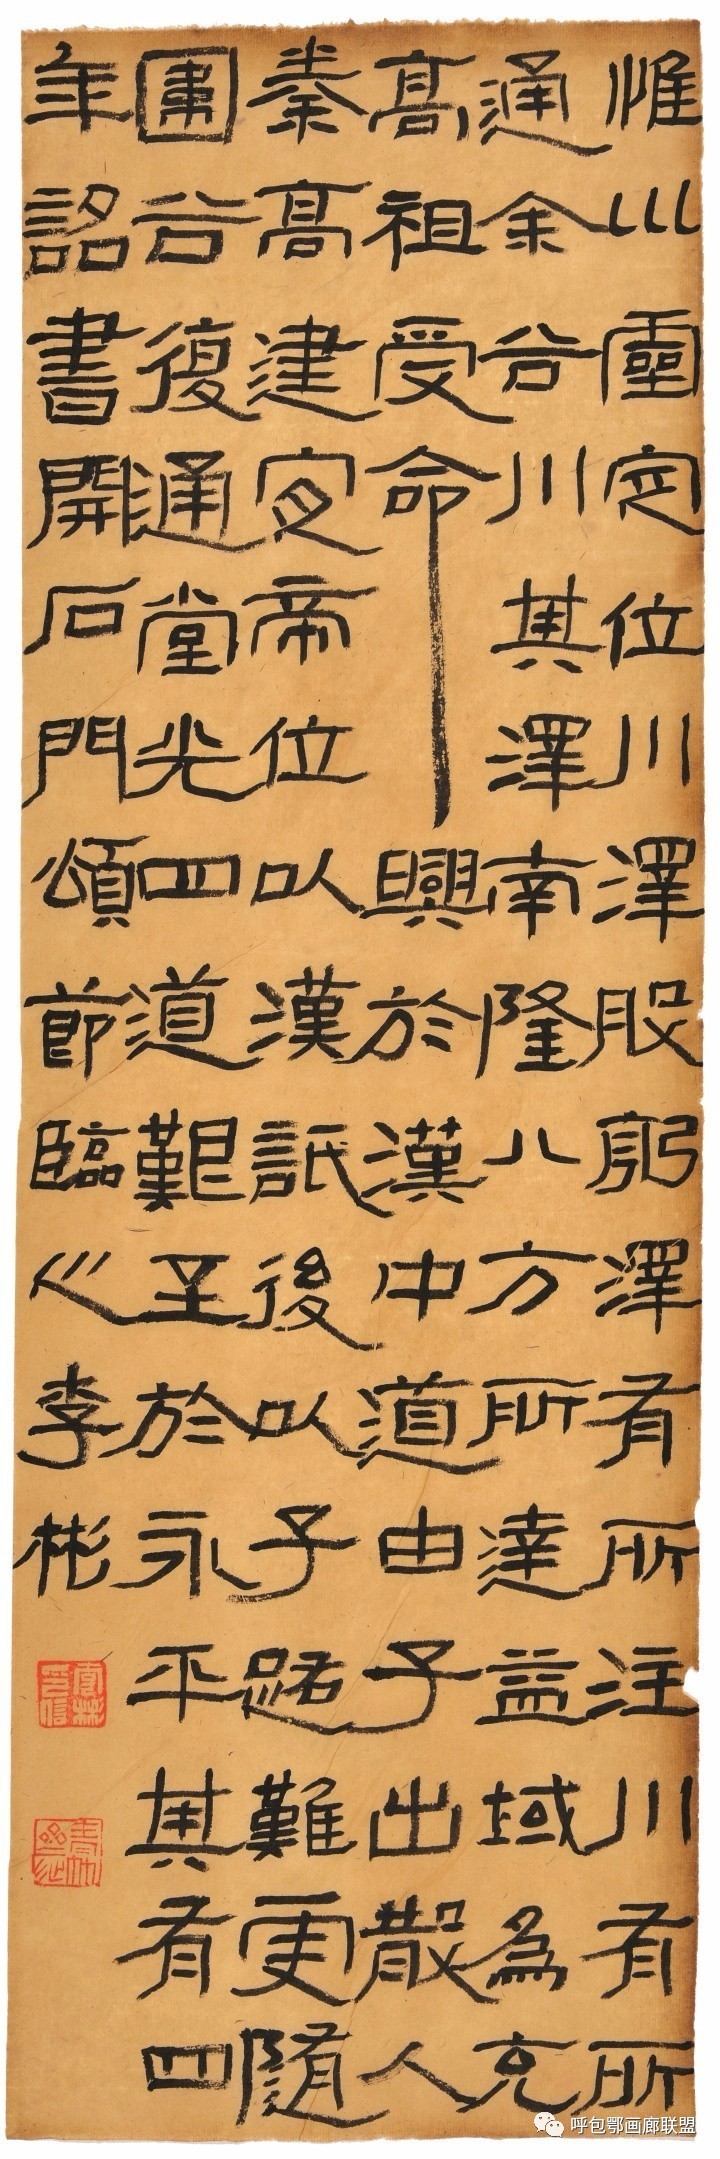 惟巛靈定位川澤股躬澤有所注川有所
通余谷川其澤南隆八方所達益域為充
高祖受命興於漢中道由子出散入
秦高建定帝位以漢詆後以子路難更隨
圍谷復通堂光四道艱至於永平其有四
年詔書開石門頌節臨之李彬
呼包鄂画廊联盟